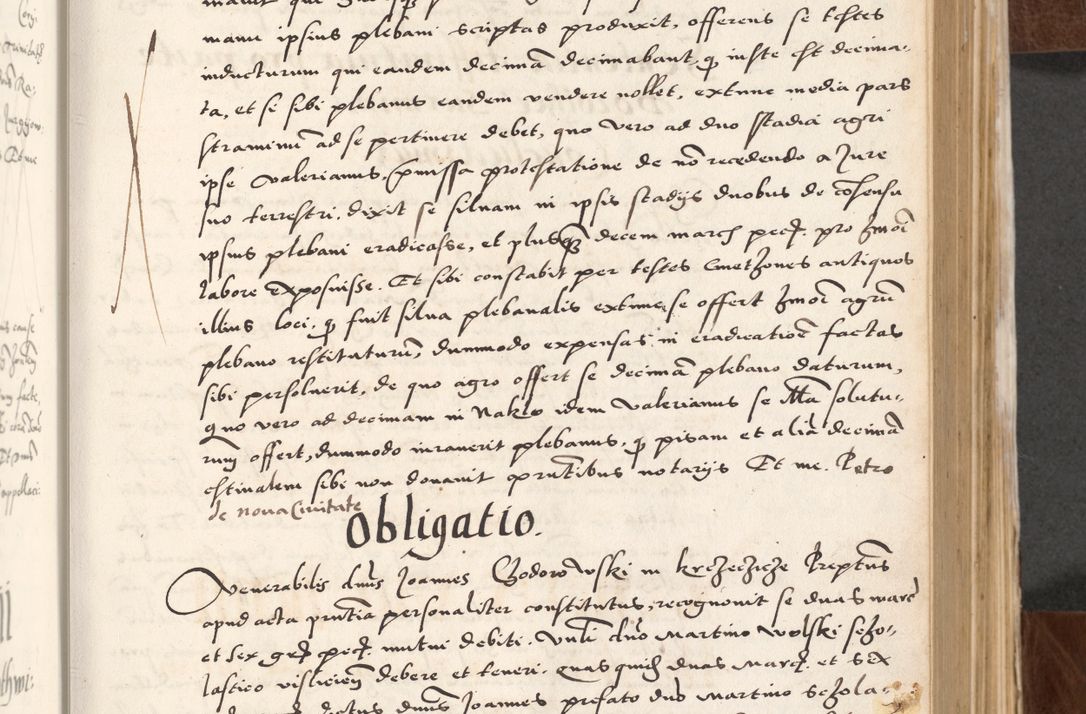 manu ipsius plebani scriptas produxit, offerens se testes
inducturum qui eandem decimā decimabant, q iuste est decima-
ta, et si sibi plebanus eandem vendere nollet, extunc media pars
straminū ad se pertinere debet, quo vero ad duo stadia agri
ipse Valerianus, pmissa protestatione de nō recedendo a Jure
suo terrestri, dixit se siluam in ipsis stadijs duobus de cōsensu
ipsius plebani eradicasse, et plusq decem march pecȩ. pro hmōi
labore exposuisse. Et sibi constabit per testes Cmethones antiquos
illius loci, q fuit silua plebanalis extunc, se offert hmōi agrū
plebano restituturū, dummodo expensas in eradicatiōe factas
sibi persoluerit, de quo agro offert se decimā plebano daturum,
quo vero ad decimam in Naklo idem Valerianus se illā solutu-
rum offert, dummodo iurauerit plebanus, q pisam et aliā decimā
estiualem sibi non donauit pntibus notarijs Et me. Petro
de noua Ciuitate
Obligatio.
Venerabilis dnus Joannes Godorowski in krzeczicze Preptus
apud acta pntia personaliter constitutus, recognouit se duas marc
et sex gr pecȩ. mutui debiti. Vnli dno Martino Wolski scho-
lastico visliciem debere et teneri. Quas quidē duas marcȩ. et sex
dictus dnus Joannes prefato dno Martino schola-